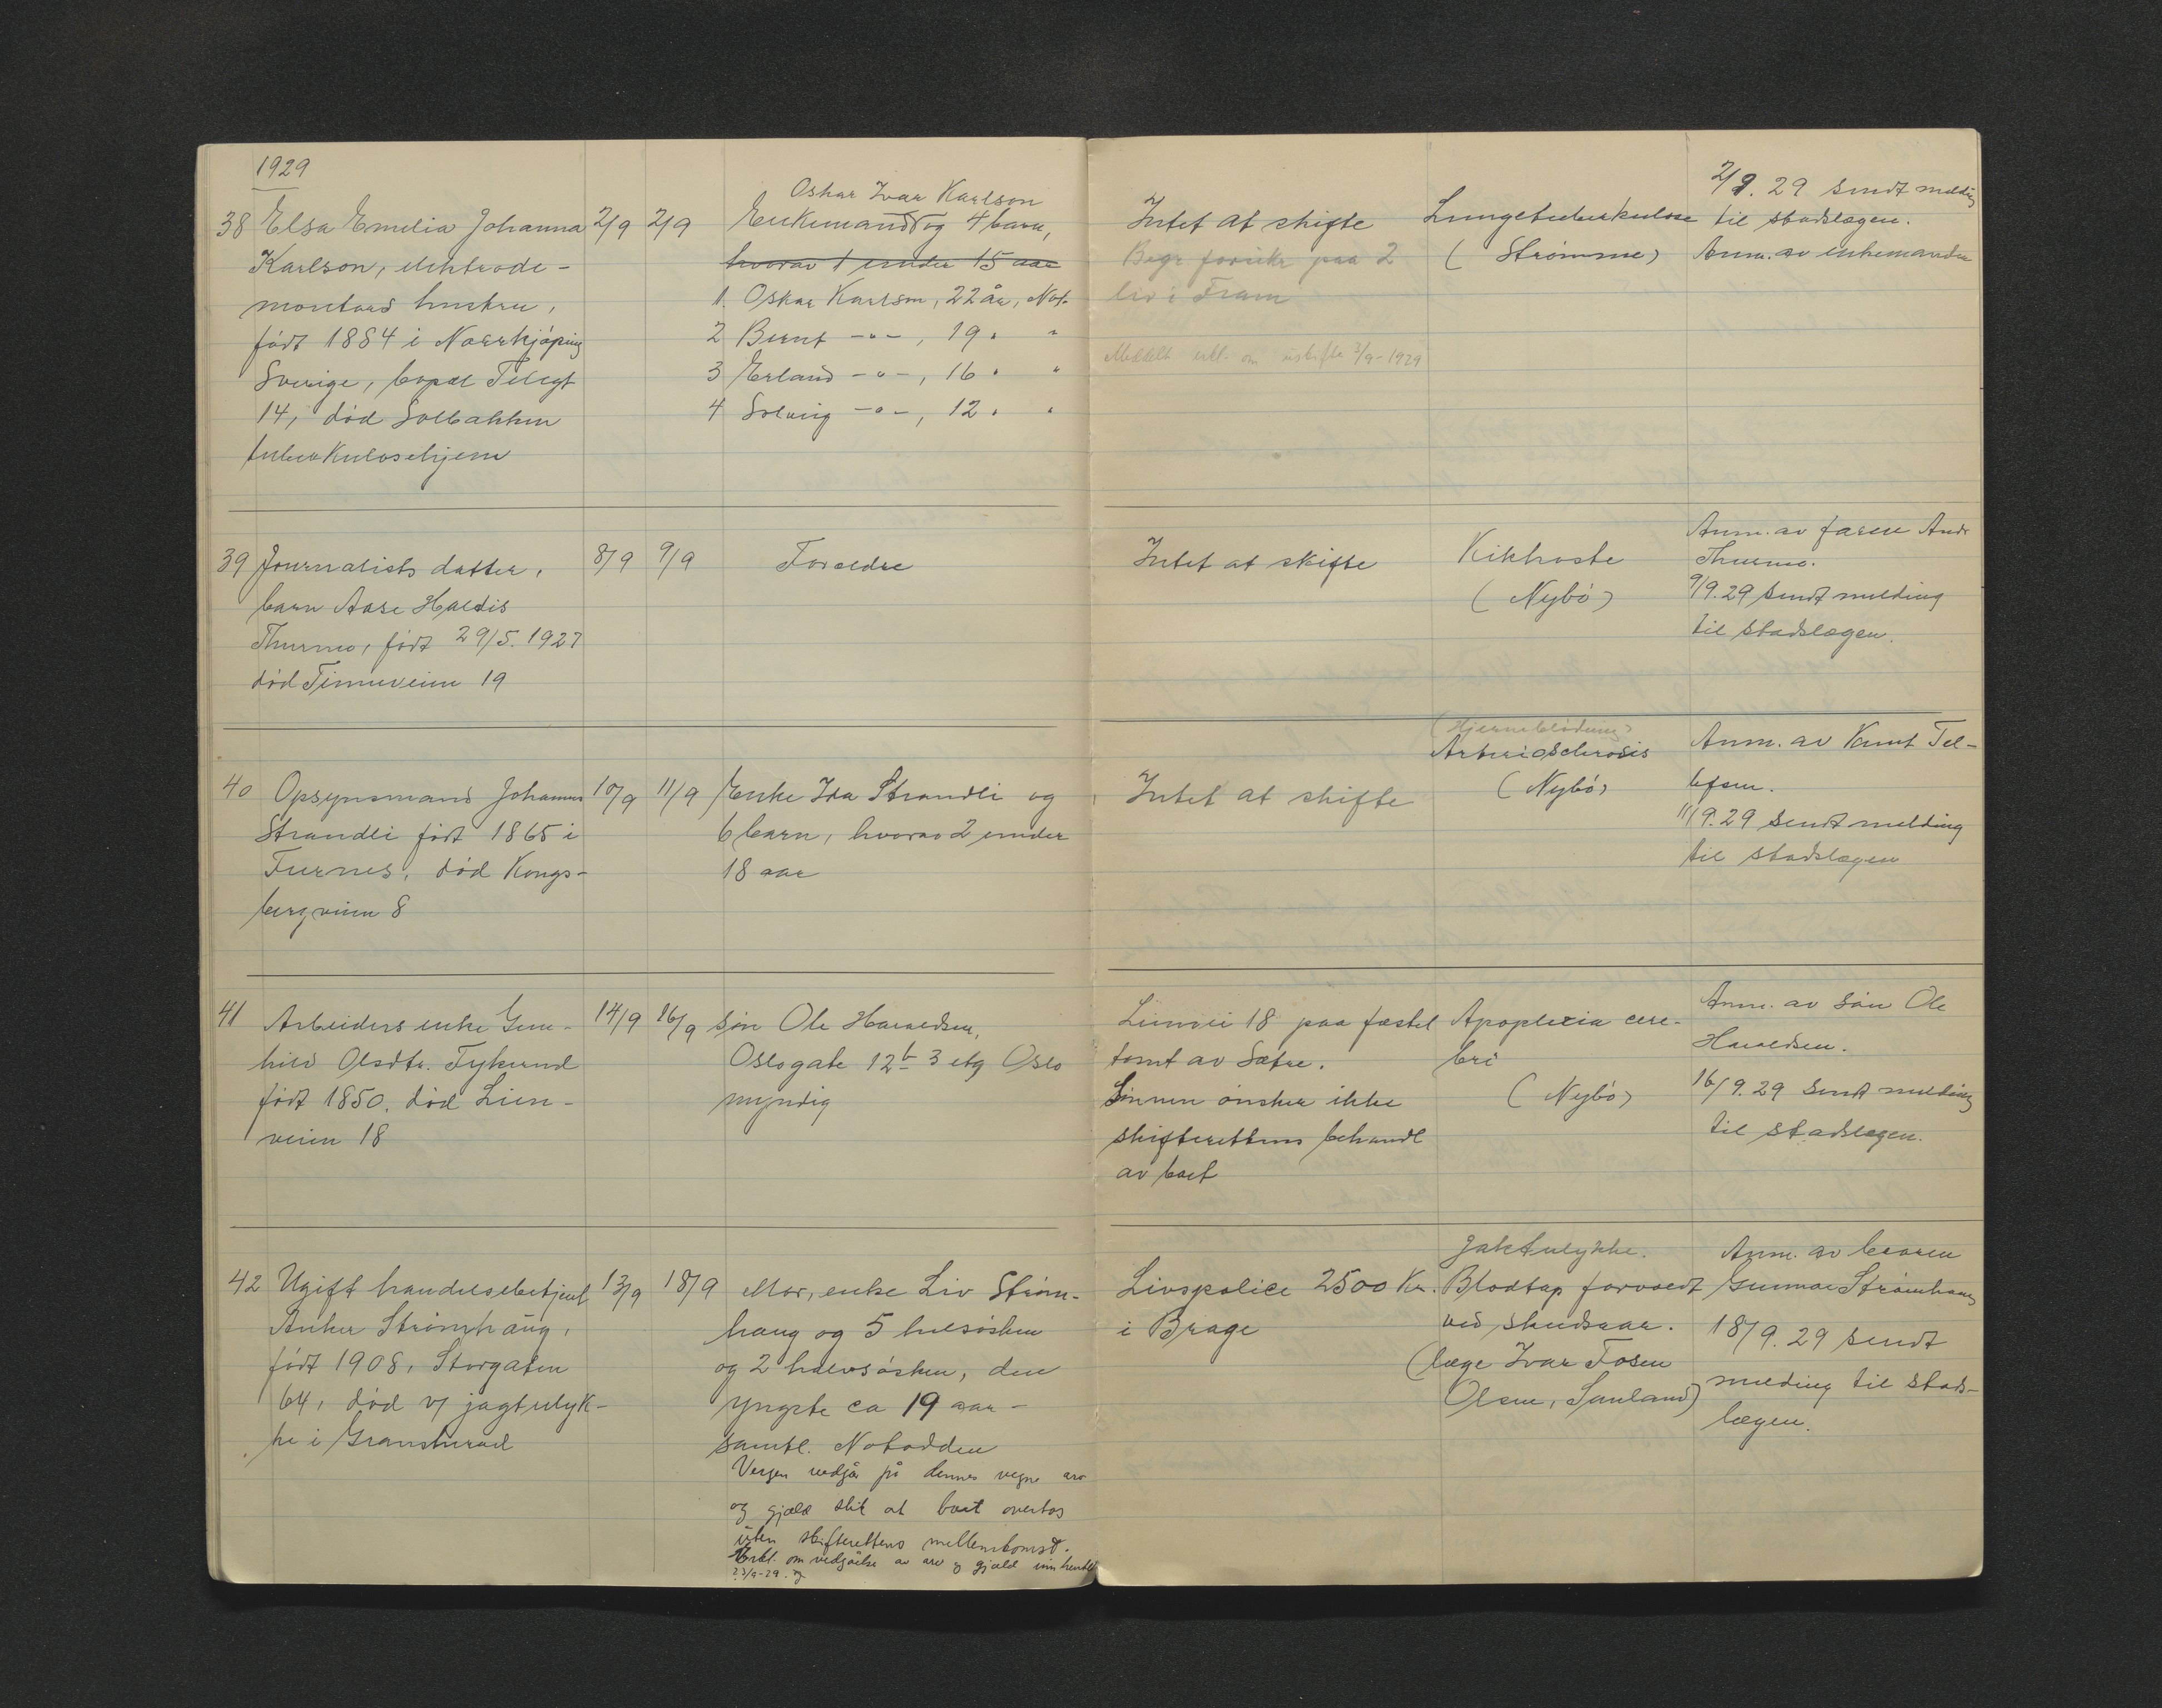 1929
38 Elsa Emilia Johanna 2/9 2/9
Karlson, elektrode-
montørs hustru,
født 1884 i Norrkjøping
Sverige, bopæl Telegt
14, død Solbakken
tuberkulosehjem
Oskar Ivar Karlson
Enkemand og 4 barn,
hvorav 1 under 15 aar
1. Oskar Karlson, 22 år, Not.
2 Bernt -"-, 19 " "
3 Erland -"-, 16 " "
4 Solveig -"-, 12 " "
Intet at skifte
Begr forsikr paa 2
liv i Fram
Meddelt erkl. om uskifte 3/9-1929
Lungetuberkulose
(Strømme)
2/9. 29 sendt melding
til stadslægen.
Anm. av enkemanden
39 Journalists datter, 8/9 9/9 Forældre
barn Aase Haldis
Thurmo, født 29/5. 1927
død Tinneveien 19
Intet at skifte
Kikhoste
(Nybø)
Anm. av faren Andr
Thurmo.
9/9. 29 sendt melding
til stadslægen.
40 Opsynsmand Johannes 10/9 11/9
Strandli født 1865 i
Furnes, død Kongs-
bergveien 8
Enke Ida Strandli og
6 barn, hvorav 2 under
18 aar
Intet at skifte
(Hjerneblødning)
Arteriosclerosis
(Nybø)
Anm. av Knut Tel-
lefsen.
11/9. 29 sendt melding
til stadslægen
41 Arbeiders enke Gun- 14/9 16/9
hild Olsdtr. Tykerud
født 1850. død Lien-
veien 18
Søn Ole Haraldsen,
Oslogate 12b 3 etg Oslo
myndig
Lienvei 18 paa fæstet
tomt av Sætre.
Sønnen ønsker ikke
skifterettens behandl
av boet
Apoplexia cere-
bri
(Nybø)
Anm. av søn Ole
Haraldsen.
16/9. 29 sendt melding
til stadslægen.
42 Ugift handelsbetjent 13/9 18/9
Anker Strømhaug,
født 1908, Storgaten
64, død v/ jagtulyk-
ke i Gransherad
Mor, enke Liv Strøm-
haug og 5 helsøsken
og 2 halvsøsken, den
yngste ca 19 aar -
samtl. Notodden
Vergen vedgår på dennes vegne arv
og gjæld slik at boet overtas
uten skifterettens mellemkomst.
Erkl. om vedgåelse av arv og gjæld innhentet
23/9-29.
Livspolice 2500 Kr.
i Brage
Jaktulykke.
Blodtap forvoldt
ved skudsaar.
(læge Ivar Fosen
Olsen, Sauland)
Anm. av broren
Gunnar Strømhaug
18/9. 29 sendt
melding til stads-
lægen.